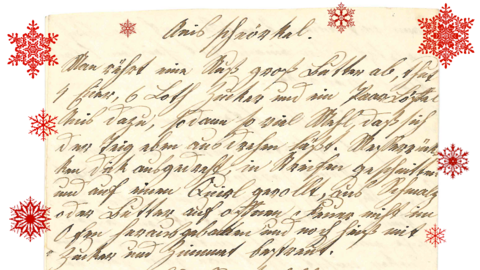 Anis schnörkel.
Man rührt eine Nuß groß Butter ab, thut
4 Eier, 6 Loth Zucker und ein
Anis dazu, sodann so viel Mehl, daß sich
der Teig eben ausdrehen läßt. Messerrück-
ken dick ausgedreht, in Streifen geschnitten
und auf einem Quirl gerollt, aus Schmalz
oder Butter auf offenem Feuer nicht im
Ofen herausgebacken und noch heiß mit
Zucker und Zimmet bestreut.